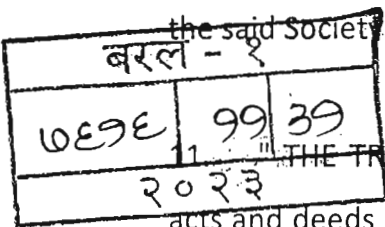 the said Societ
बरल - १
७६१६ ११ ३१
11. " THE TR
२०२३
acts and deeds